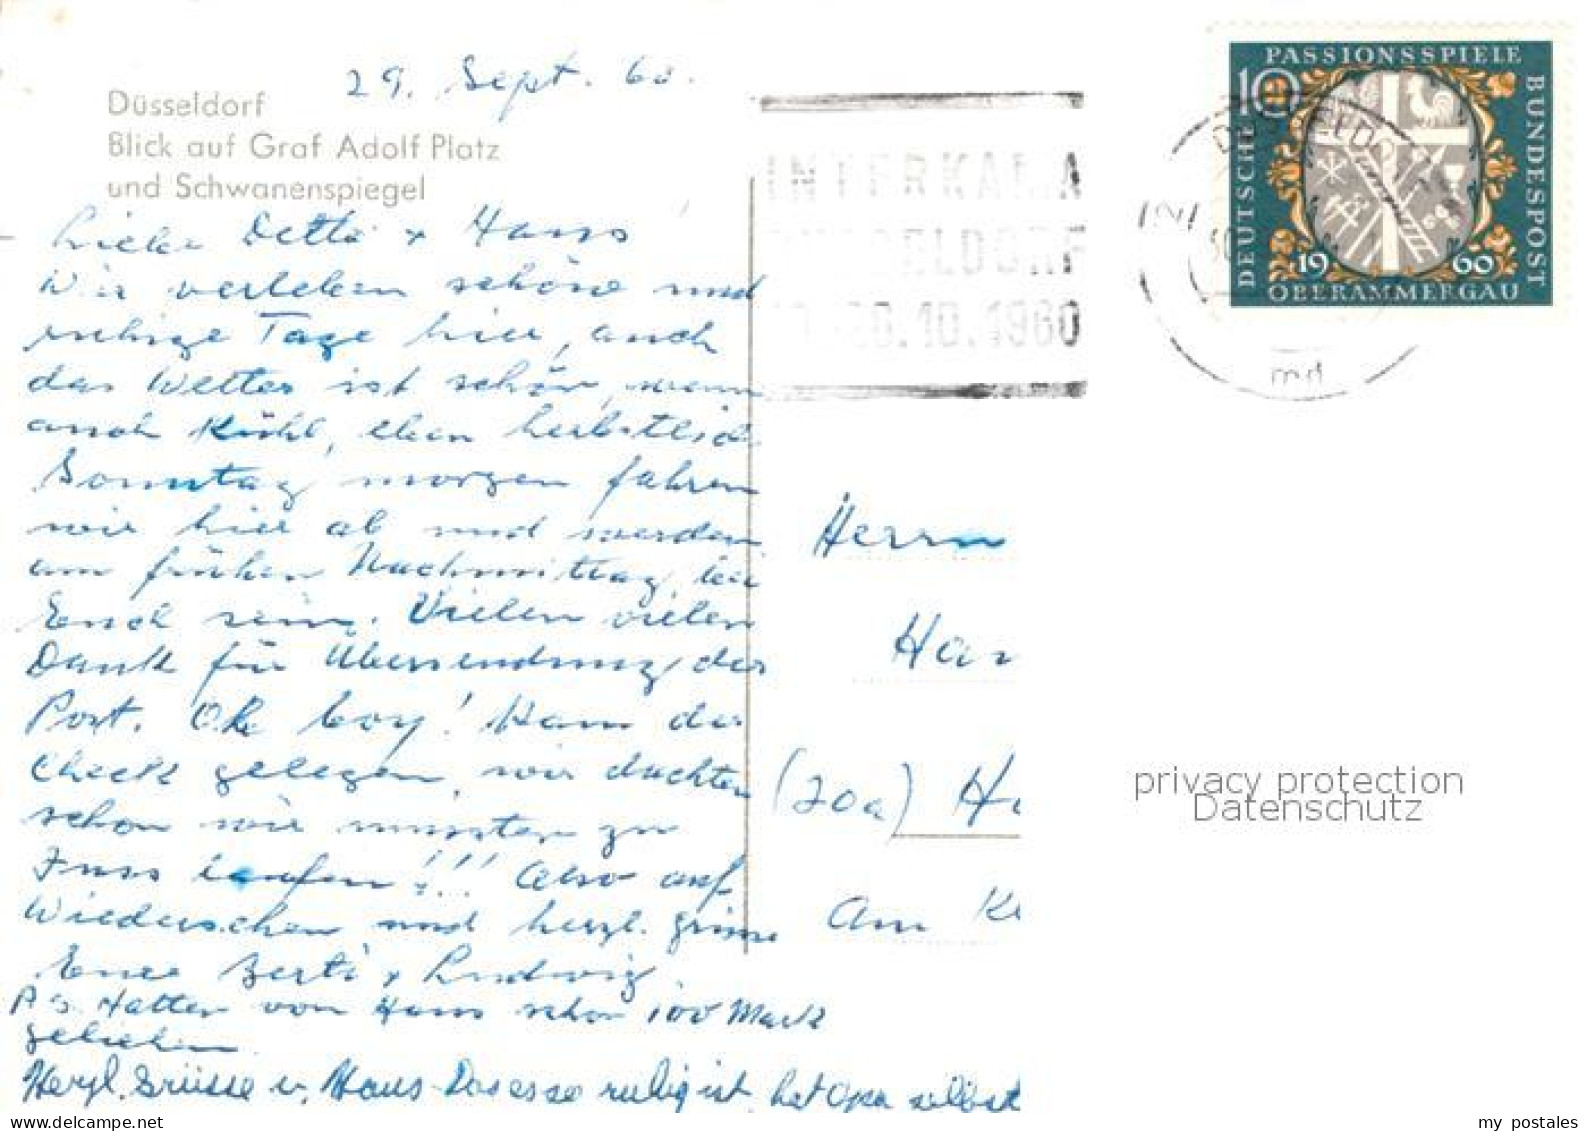 29. Sept. 60.
Düsseldorf
Blick auf Graf Adolf Platz
und Schwanenspiegel
Liebe Detta + Hans
Wir verleben schöne und
ruhige Tage hier, auch
das Wetter ist schön, wenn
auch Kühl, eben herbstlich
Sonntag morgen fahren
wir hier ab und werden
am frühen Nachmittag bei
Euch sein. Vielen vielen
Dank für Übersendung der
Post. Oh boy! Kam der
Check gelegen, wir dachten
schon wir müssten zu
Fuss laufen!!! Also auf
Wiedersehen und herzl. Grüsse
Eure Berti + Ludwig
P.S. Hatten von Hans schon 100 Mark
geliehen.
Herzl. Grüsse v. Hans Dass es so ruhig ist hat Opa selbst
INTERKAMA
DÜSSELDORF
20.10.1960
PASSIONSSPIELE
10
DEUTSCHE
BUNDESPOST
1960
OBERAMMERGAU
md
Herrn
Han
(20a) Ha
Am K
privacy protection
Datenschutz
my postales